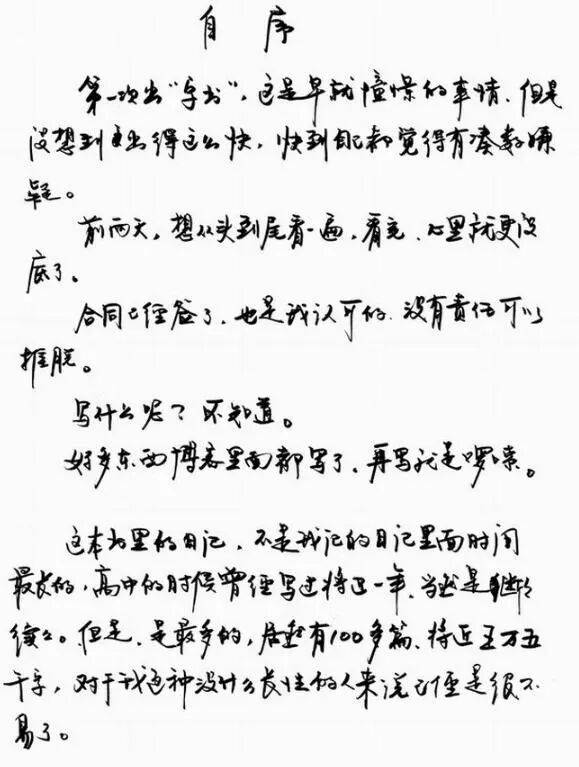 自序
第一次出“字书”，这是早就憧憬的事情，但是
没想到会出得这么快，快到自己都觉得有凑数嫌
疑。
前两天，想从头到尾看一遍，看完，心里就更没
底了。
合同已经签了，也是我认可的，没有责任可以
推脱。
写什么呢？不知道。
好多东西博客里面都写了，再写就是啰嗦。
这本书里的日记，不是我记的日记里面时间
最长的，高中的时候曾经写过将近一年，当然是断断
续续。但是，是最多的，居然有100多篇，将近五万五
千字，对于我这种没什么长性的人来说已经是很不
易了。